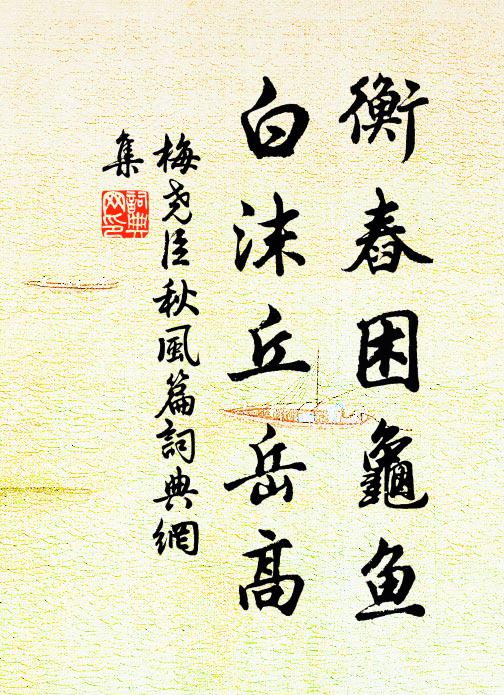 衡舂困龜魚
白沫丘岳高
梅堯臣秋風篇詞典網
集
詞典網印